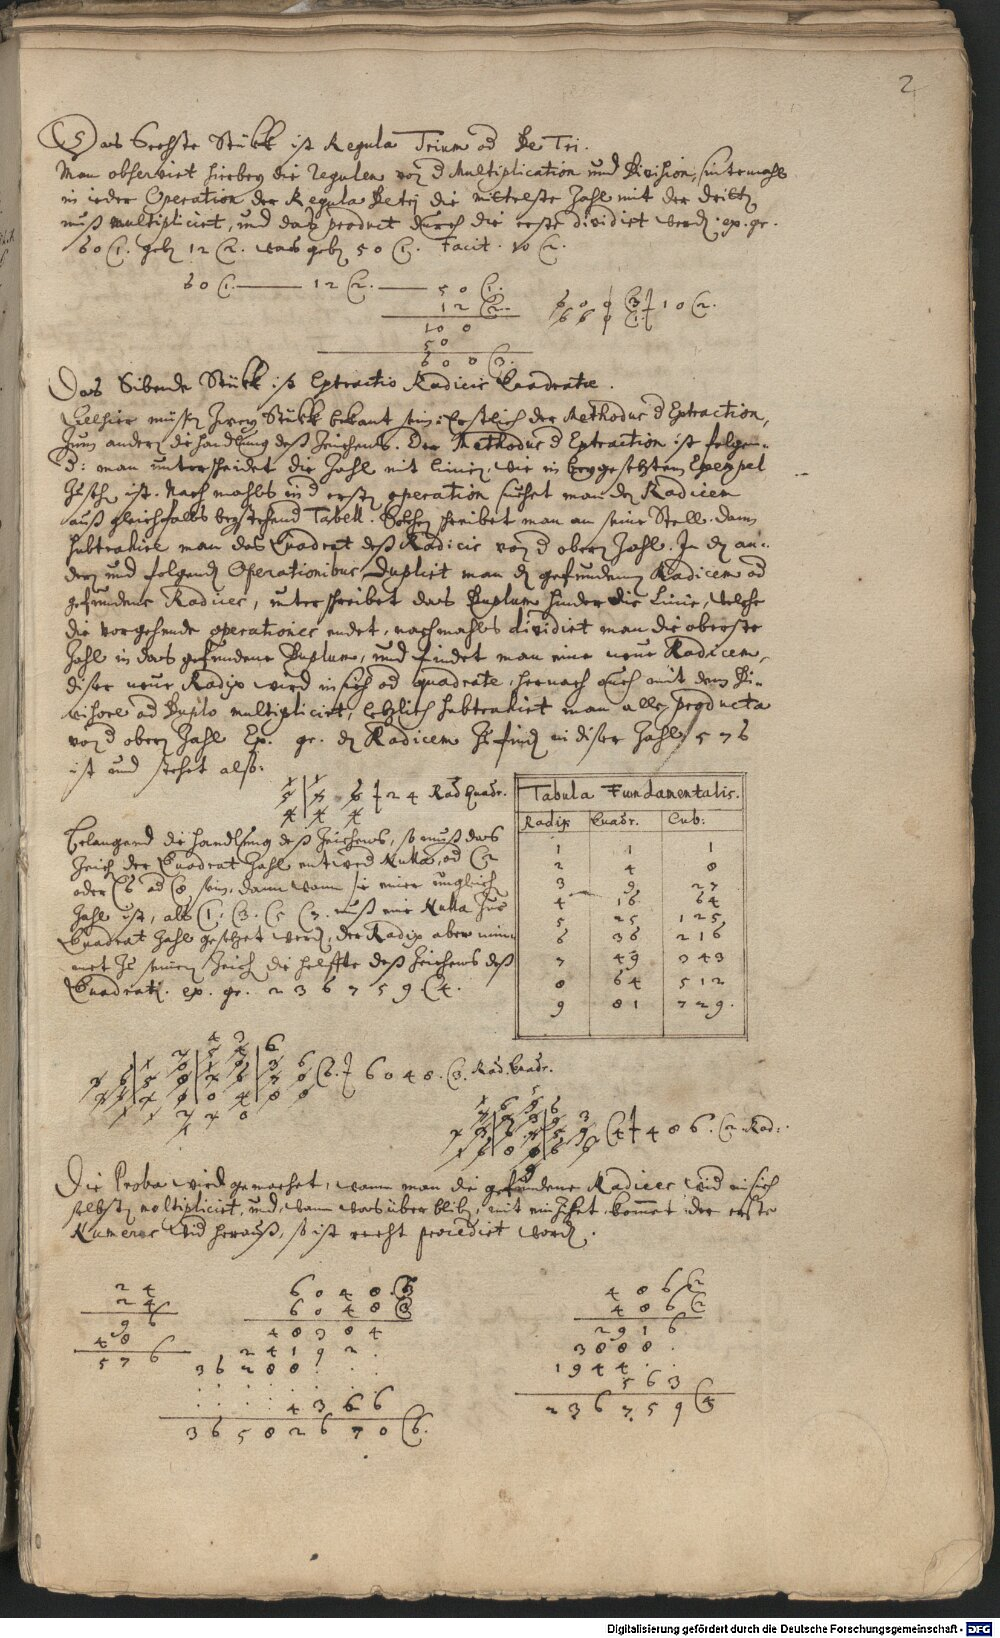 2
Das Sechste Stükk ist Regula Trium od De Tri.
Man observirt hierbey die Regulen von d Multiplication und Division, sintemahl
in jeder Operation der Regula Detri die mittelste Zahl mit der dritt
muß multiplicirt, und daß product durch die erste dividirt werd. ex. gr.
60 (1. geb 12 (2. was geb 50 (1. Facit. 10 (2.
60 (1. — 12 (2. — 50 (1.
12 (2.
100
50
600 (3.
600 (3 10 (2.
Das Sibende Stükk ist Extractio Radicis Quadratæ.
Allhier müß Zwey Stükk bekant sein: Erstlich der Methodus d Extraction,
Zum andern die handlung deß Zeichens. Der Methodus d Extraction ist folgen-
d: man unterscheidet die Zahl mit linien, wie in beygesetztem Exempel
Zusehn ist. Nachmahls in d erst operation suchet man den Radicem
auß gleichfalls beystehend Tabell. Solchen schreibet man an seine Stell. dann
subtrahire man das Quadrat deß Radicis von d obern Zahl. In den an-
dern und folgend Operationibus Duplirt man den gefundenen Radicem od
gefundene Radices, unterschreibet das Duplum hinder die Linie, welche
die vorgehende operationes endet, nachmahls dividirt man die oberste
Zahl in das gefundene Duplum, und findet man eine neue Radicem,
diser neue Radix wird in sich od quadrate, hernach auch mit dem Di-
visore od Duplo multiplicirt, letzlich subtrahirt man alle producta
von d obern Zahl. Ex. gr. den Radicem Zufind in diser Zahl 576
ist und stehet also:
5 7 6 24 Rad Quadr.
Tabula Fundamentalis.
Radix Quadr. Cub:
1 1 1
2 4 8
3 9 27
4 16 64
5 25 125
6 36 216
7 49 343
8 64 512
9 81 729.
Belangend die handlung deß Zeichens, so muß das
Zeich der Quadrat Zahl entwed Nulla, od (2
oder (6 od (8 sein, dann wann sie einer ungleich
Zahl ist, als (1. (3. (5 (7. muß eine Nulla Zur
Quadrat Zahl gesetzet werd, der Radix aber nim-
met Zu seinem Zeich die helffte deß Zeichens deß
Quadrati. ex. gr. 236759 (4.
6048. (3. Rad. Quadr.
486. (2 Rad:
Die Proba wird gemachet, wann man die gefundene Radices wid in sich
selbst multiplicirt, und, wann was überblib, mit einZihet, kommet der erste
Numerus wid herauß, so ist recht procedirt word.
24
24
96
48
576
6048 (3
6048 (3
48384
24192 .
36288 . .
4366
36582670 (6.
486 (2
486 (2
2916
3888 .
1944 . .
563
236759 (4
Digitalisierung gefördert durch die Deutsche Forschungsgemeinschaft - DFG